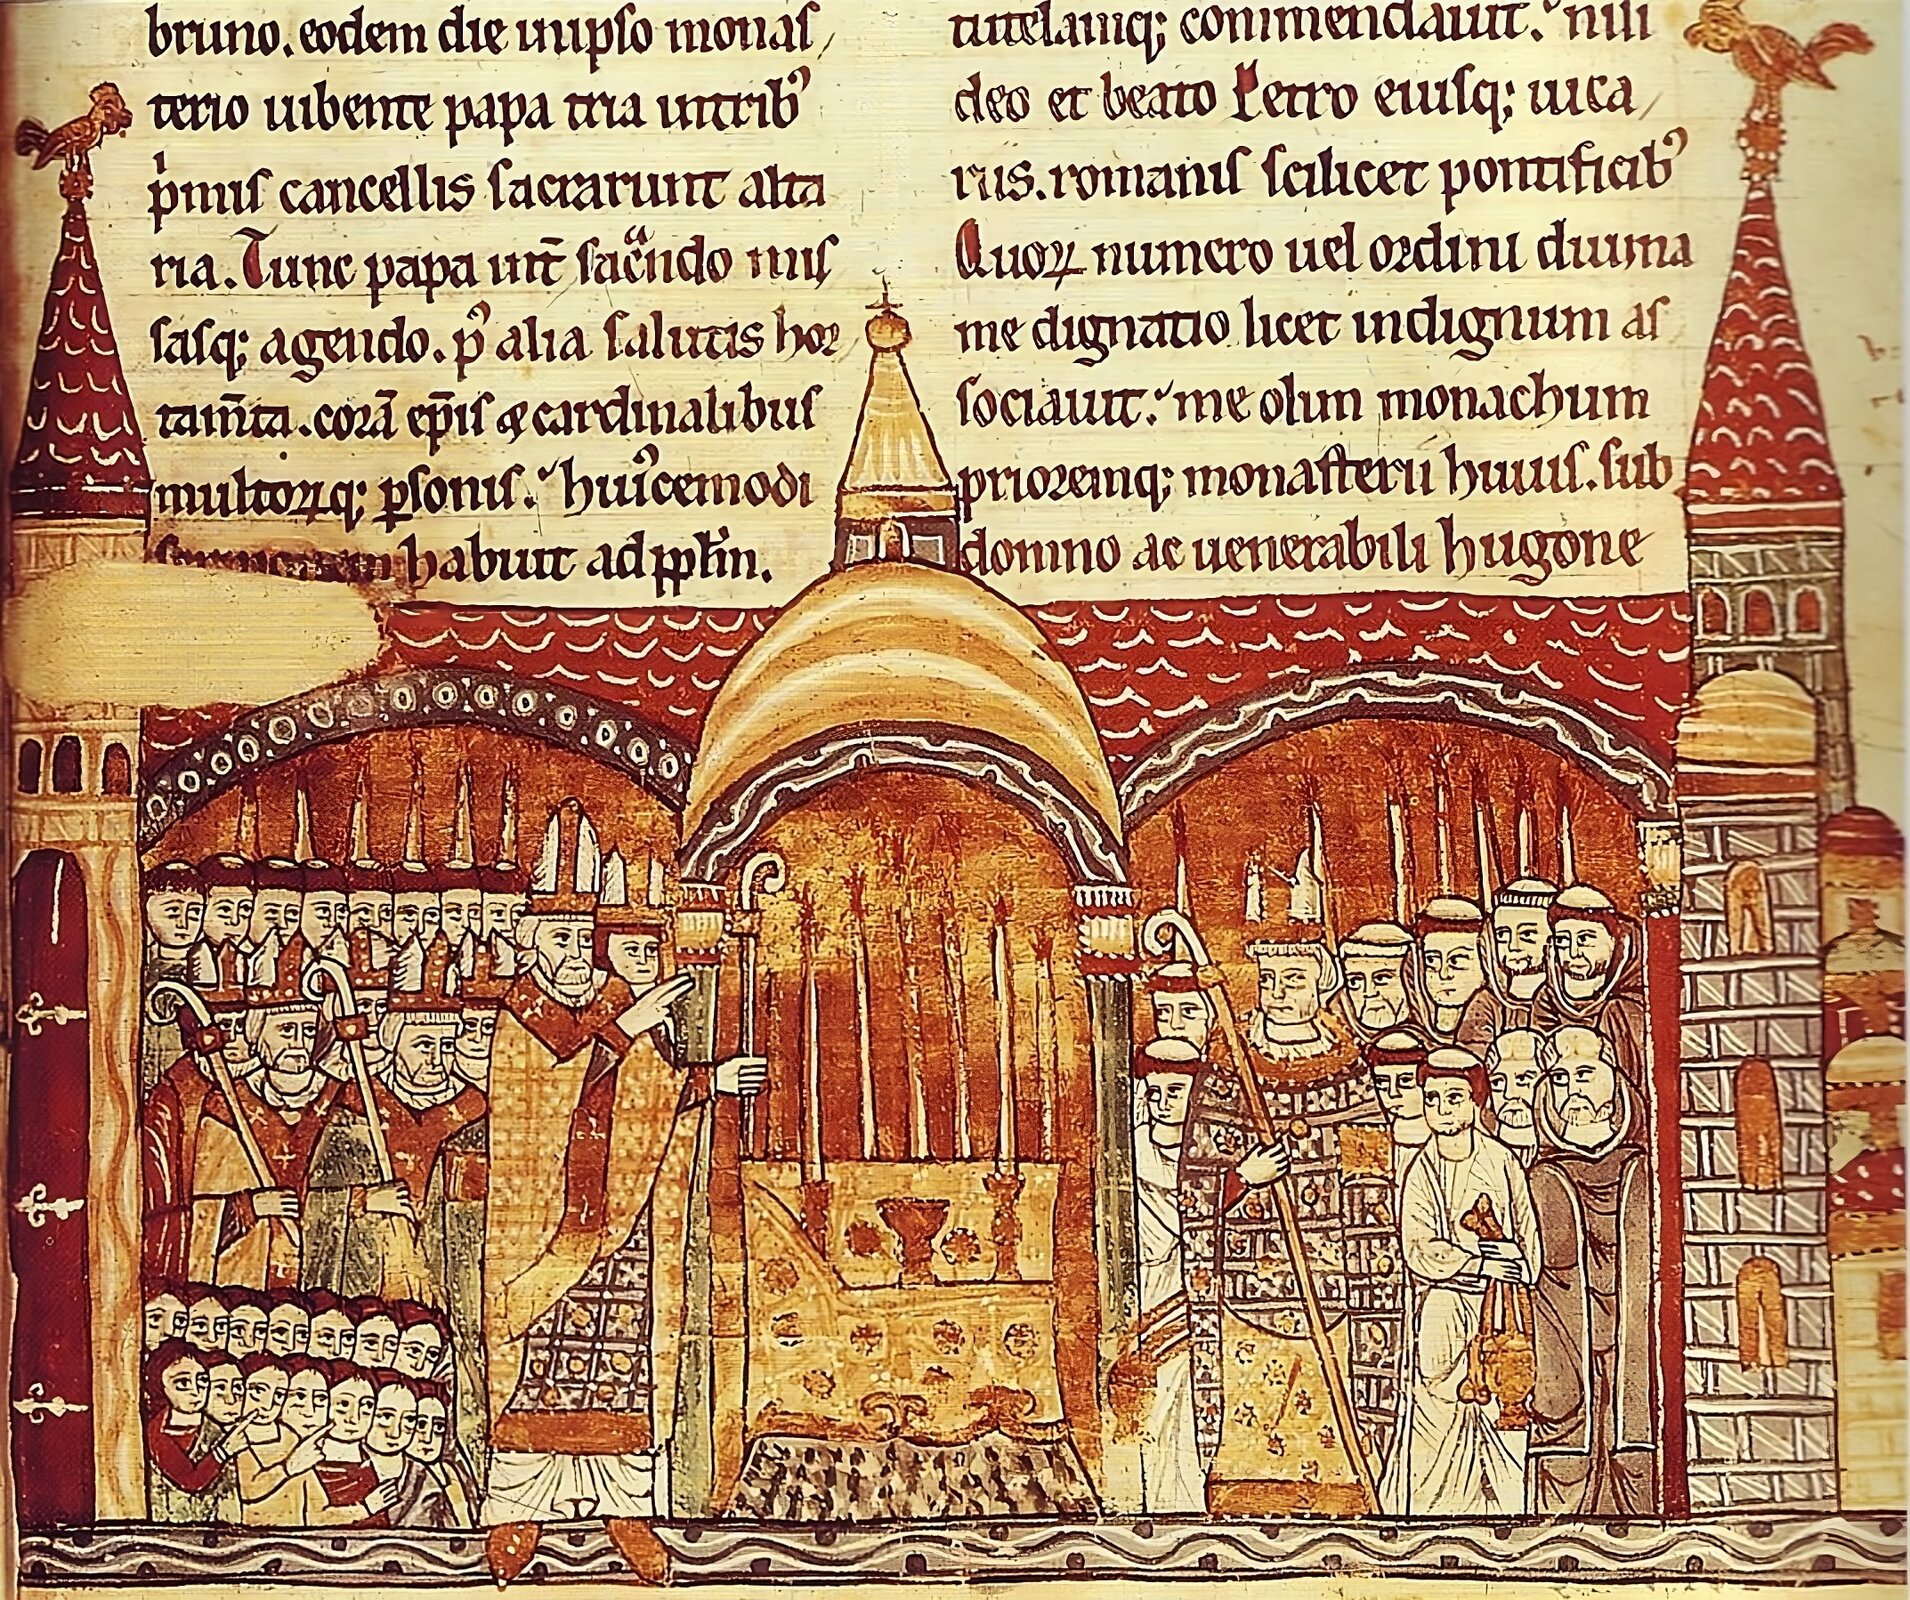 bruno. eodem die in ipso monas/
terio iubente papa tria in trib᾽
p̍mis cancellis sacrarunt alta
ria. Tunc papa int̄ sac̃ndo mis
sasq; agendo. p᾽ alia salutis hor
tam̄ta. corā ep̄is ⁊ cardinalibus
multoꝝq; ꝑsonis. huiꝰcemodi
habuit ad pp̄lm.
tutelamq; commendauit. nisi
deo et beato Petro eiusq; uica/
riis. romanis scilicet pontificib᾽
Quoꝝ numero uel ordini diuina
me dignatio licet indignum as
sociauit. me olim monachum
prioremq; monasterii huius. sub
domno ac uenerabili hugone